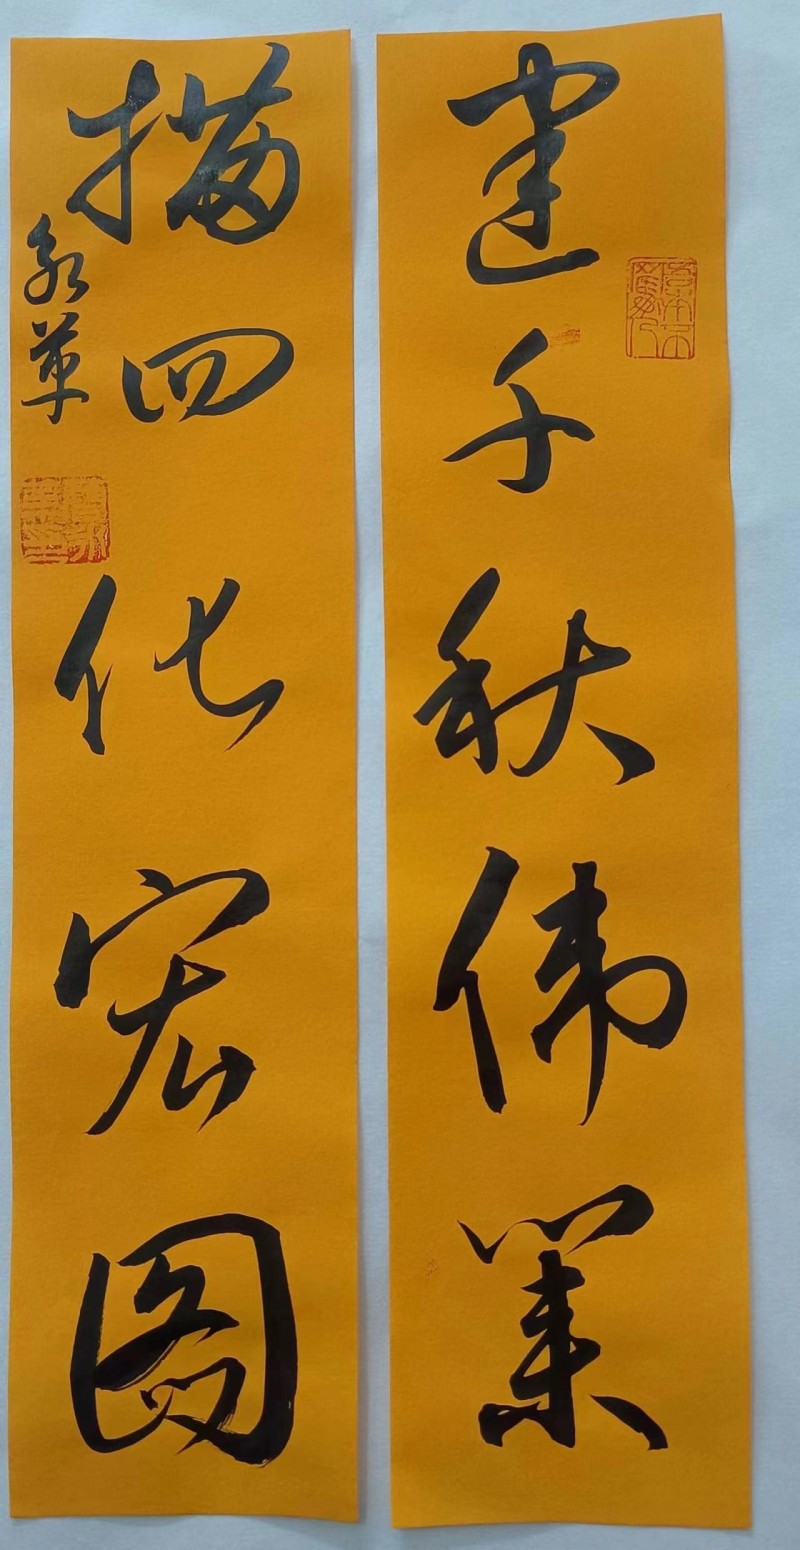 建千秋伟业
描四化宏图
永革